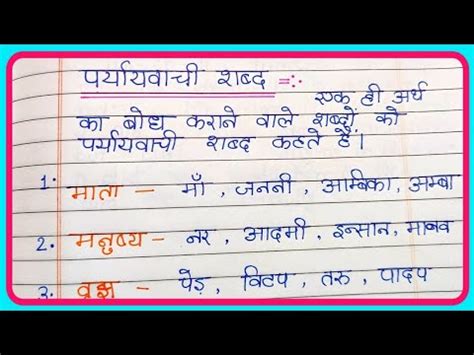 पर्यायवाची शब्द =:
एक ही अर्थ
का बोध कराने वाले शब्दों को
पर्यायवाची शब्द कहते हैं।
1. माता – माँ, जननी, अम्बिका, अम्बा
2. मनुष्य – नर, आदमी, इन्सान, मानव
3. वृक्ष – पेड़, विटप, तरु, पादप